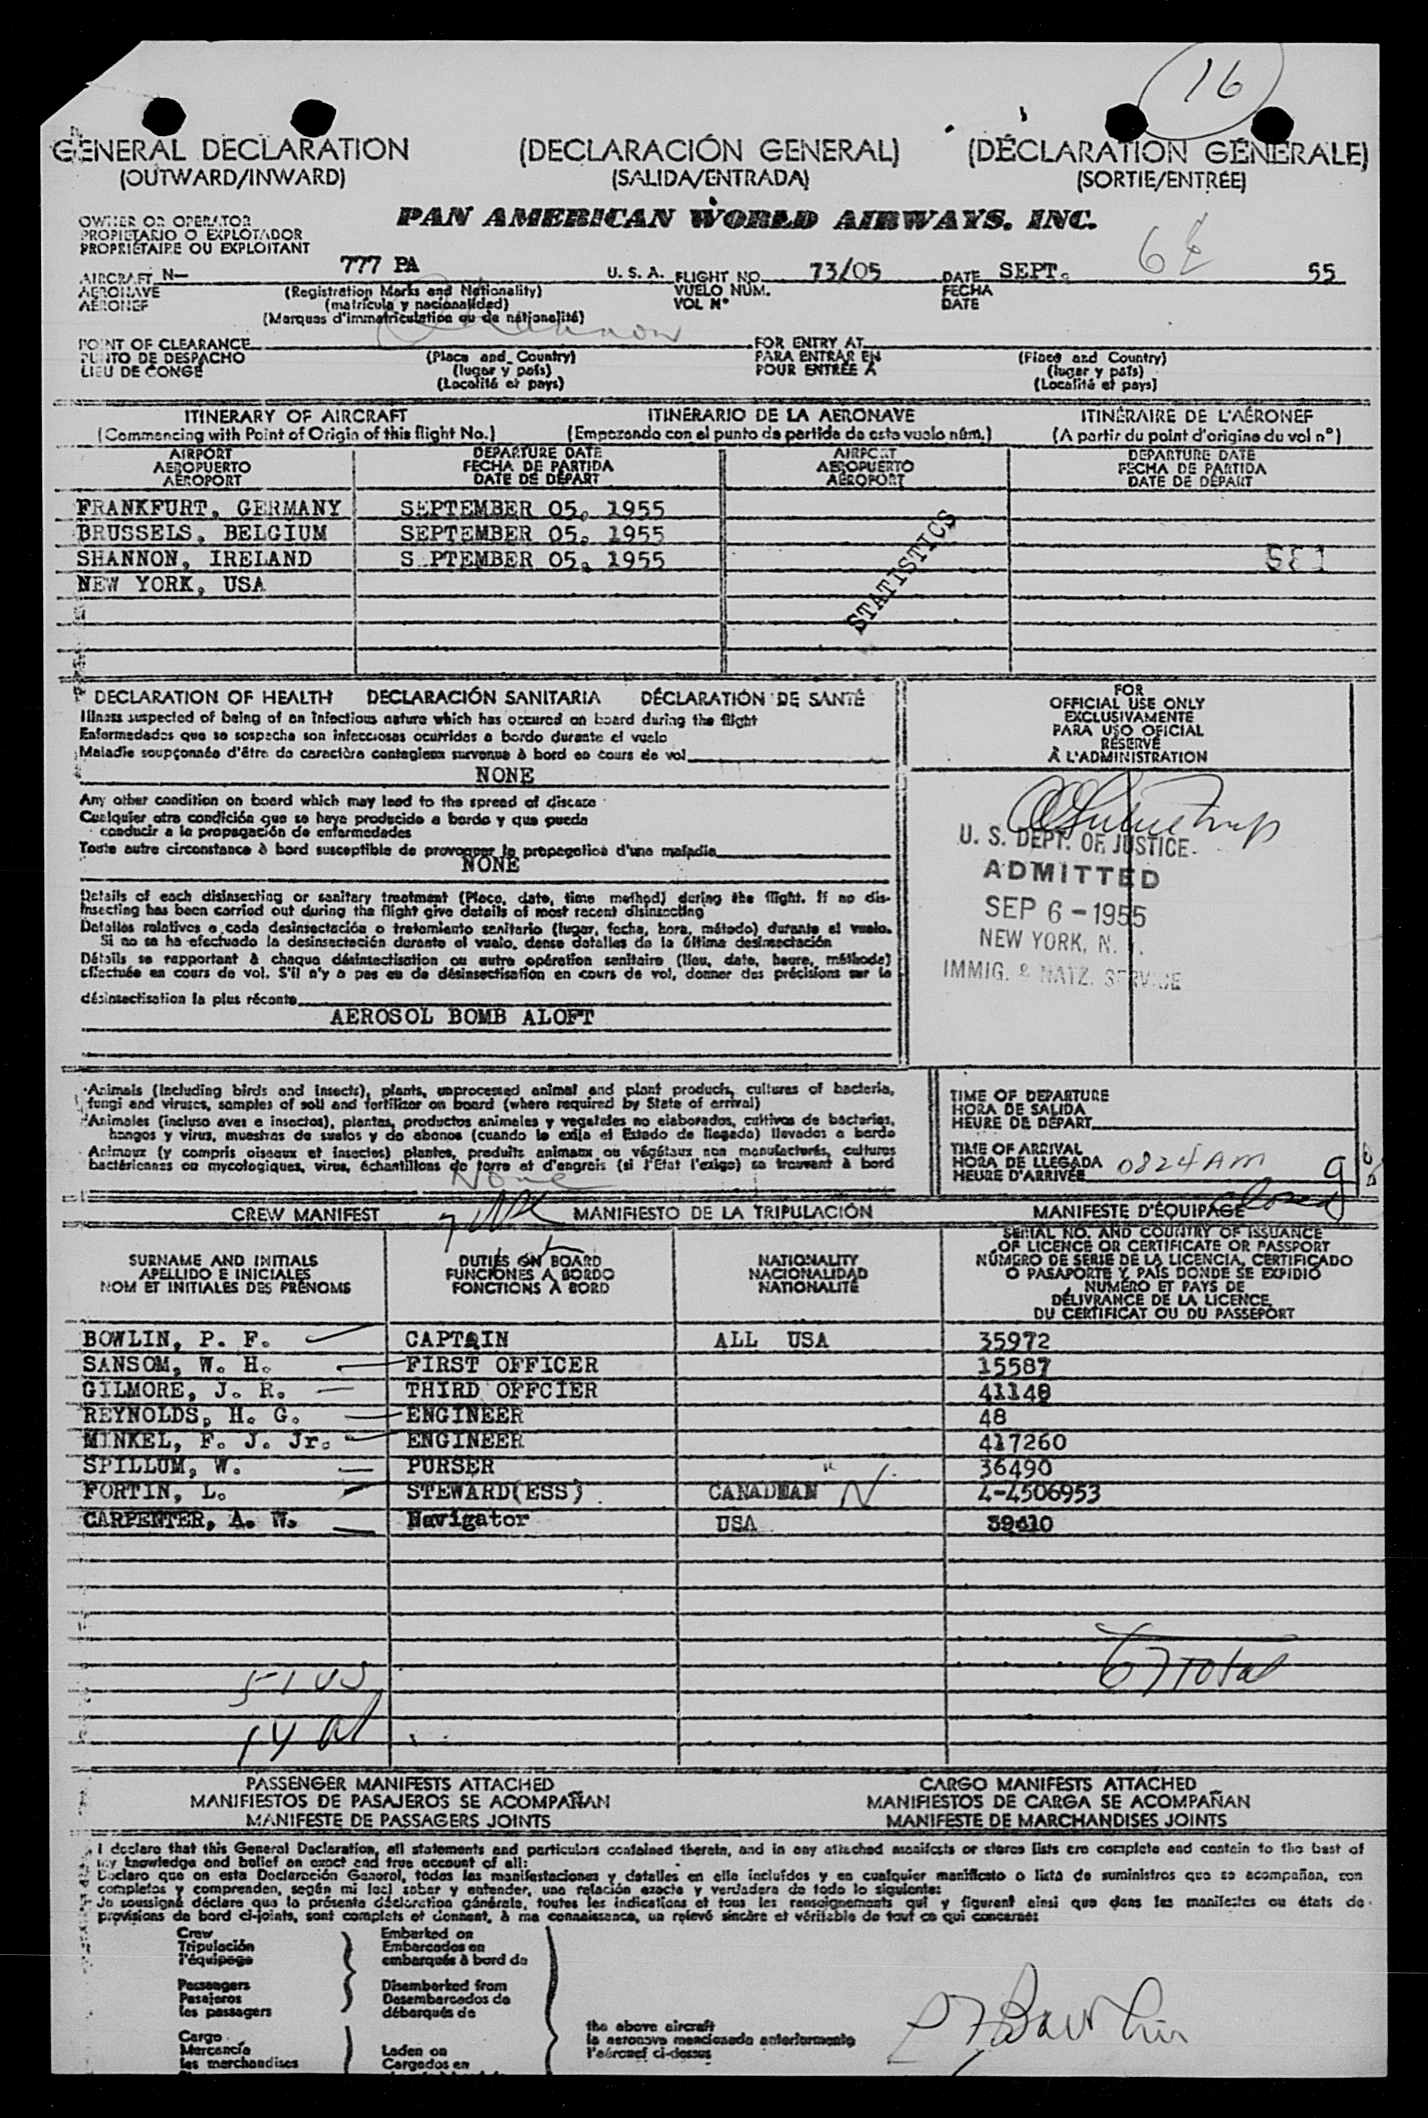 16
GENERAL DECLARATION (DECLARACIÓN GENERAL) (DÉCLARATION GÉNÉRALE)
(OUTWARD/INWARD) (SALIDA/ENTRADA) (SORTIE/ENTRÉE)
OWNER OR OPERATOR
PROPIETARIO O EXPLOTADOR
PROPRIÉTAIRE OU EXPLOITANT
PAN AMERICAN WORLD AIRWAYS, INC.
AIRCRAFT N— 777 PA U. S. A. FLIGHT NO. 73/05 DATE SEPT. 6 55
AERONAVE (Registration Marks and Nationality) VUELO NUM. FECHA
AÉRONEF (matrícula y nacionalidad) VOL Nº DATE
(Marques d'immatriculation ou de nationalité)
Shannon
POINT OF CLEARANCE FOR ENTRY AT
PUNTO DE DESPACHO (Place and Country) PARA ENTRAR EN (Place and Country)
LIEU DE CONGÉ (lugar y país) POUR ENTRÉE À (lugar y país)
(Localité et pays) (Localité et pays)
ITINERARY OF AIRCRAFT ITINERARIO DE LA AERONAVE ITINÉRAIRE DE L'AÉRONEF
(Commencing with Point of Origin of this flight No.) (Empezando con el punto de partida de este vuelo núm.) (A partir du point d'origine du vol nº)
AIRPORT DEPARTURE DATE AIRPORT DEPARTURE DATE
AEROPUERTO FECHA DE PARTIDA AEROPUERTO FECHA DE PARTIDA
AÉROPORT DATE DE DÉPART AÉROPORT DATE DE DÉPART
FRANKFURT, GERMANY SEPTEMBER 05, 1955
BRUSSELS, BELGIUM SEPTEMBER 05, 1955
SHANNON, IRELAND S PTEMBER 05, 1955
NEW YORK, USA
STATISTICS
DECLARATION OF HEALTH DECLARACIÓN SANITARIA DÉCLARATION DE SANTÉ
Illness suspected of being of an infectious nature which has occured on board during the flight
Enfermedades que se sospecha son infecciosas ocurridas a bordo durante el vuelo
Maladie soupçonnée d'être de caractère contagieux survenue à bord en cours de vol
NONE
Any other condition on board which may lead to the spread of disease
Cualquier otra condición que se haya producido a bordo y que pueda
conducir a la propagación de enfermedades
Toute autre circonstance à bord susceptible de provoquer la propagation d'une maladie
NONE
Details of each disinsecting or sanitary treatment (Place, date, time method) during the flight. If no dis-
insecting has been carried out during the flight give details of most recent disinsecting
Detalles relativos a cada desinsectación o tratamiento sanitario (lugar, fecha, hora, método) durante el vuelo.
Si no se ha efectuado la desinsectación durante el vuelo, dense detalles de la última desinsectación
Détails se rapportant à chaque désinsectisation ou autre opération sanitaire (lieu, date, heure, méthode)
effectuée en cours de vol. S'il n'y a pas eu de désinsectisation en cours de vol, donner des précisions sur la
désinsectisation la plus récente
AEROSOL BOMB ALOFT
FOR
OFFICIAL USE ONLY
EXCLUSIVAMENTE
PARA USO OFICIAL
RÉSERVÉ
À L'ADMINISTRATION
U. S. DEPT. OF JUSTICE
ADMITTED
SEP 6 - 1955
NEW YORK, N. .
IMMIG. & NATZ. SERVICE
Animals (including birds and insects), plants, unprocessed animal and plant products, cultures of bacteria,
fungi and viruses, samples of soil and fertilizer on board (where required by State of arrival)
Animales (incluso aves e insectos), plantas, productos animales y vegetales no elaborados, cultivos de bacterias,
hongos y virus, muestras de suelos y de abonos (cuando lo exija el Estado de llegada) llevados a bordo
Animaux (y compris oiseaux et insectes) plantes, produits animaux ou végétaux non manufacturés, cultures
bactériennes ou mycologiques, virus, échantillons de terre et d'engrais (si l'État l'exige) se trouvant à bord
None
TIME OF DEPARTURE
HORA DE SALIDA
HEURE DE DÉPART
TIME OF ARRIVAL
HORA DE LLEGADA 0824 AM 9
HEURE D'ARRIVÉE
closed
CREW MANIFEST MANIFIESTO DE LA TRIPULACIÓN MANIFESTE D'ÉQUIPAGE
SURNAME AND INITIALS
APELLIDO E INICIALES
NOM ET INITIALES DES PRÉNOMS
DUTIES ON BOARD
FUNCIONES A BORDO
FONCTIONS À BORD
NATIONALITY
NACIONALIDAD
NATIONALITÉ
SERIAL NO. AND COUNTRY OF ISSUANCE
OF LICENCE OR CERTIFICATE OR PASSPORT
NÚMERO DE SERIE DE LA LICENCIA, CERTIFICADO
O PASAPORTE Y PAÍS DONDE SE EXPIDIÓ
NUMÉRO ET PAYS DE
DÉLIVRANCE DE LA LICENCE,
DU CERTIFICAT OU DU PASSEPORT
BOWLIN, P. F. CAPTAIN ALL USA 35972
SANSOM, W. H. FIRST OFFICER 15587
GILMORE, J. R. THIRD OFFCIER 41148
REYNOLDS, H. G. ENGINEER 48
MINKEL, F. J. Jr. ENGINEER 417260
SPILLUM, W. PURSER " 36490
FORTIN, L. STEWARD(ESS) CANADIAN 4-4506953
CARPENTER, A. W. Navigator USA 39410
67 Total
51 US
14 al
PASSENGER MANIFESTS ATTACHED CARGO MANIFESTS ATTACHED
MANIFIESTOS DE PASAJEROS SE ACOMPAÑAN MANIFIESTOS DE CARGA SE ACOMPAÑAN
MANIFESTE DE PASSAGERS JOINTS MANIFESTE DE MARCHANDISES JOINTS
I declare that this General Declaration, all statements and particulars contained therein, and in any attached manifests or stores lists are complete and contain to the best of
my knowledge and belief an exact and true account of all:
Declaro que en esta Declaración General, todas las manifestaciones y detalles en ella incluídos y en cualquier manifiesto o lista de suministros que se acompañan, con
completos y comprenden, según mi leal saber y entender, una relación exacta y verdadera de todo lo siguiente:
Je soussigné déclare que la présente déclaration générale, toutes les indications et tous les renseignements qui y figurent ainsi que dans les manifestes ou états de
provisions de bord ci-joints, sont complets et donnent, à ma connaissance, un relevé sincère et véritable de tout ce qui concerne:
Crew Embarked on
Tripulación Embarcados en
l'équipage embarqués à bord de
Passengers Disembarked from
Pasajeros Desembarcados de
les passagers débarqués de
the above aircraft
Cargo la aeronave mencionada anteriormente
Mercancía Laden on l'aéronef ci-dessus
les marchandises Cargados en
P F Bowlin